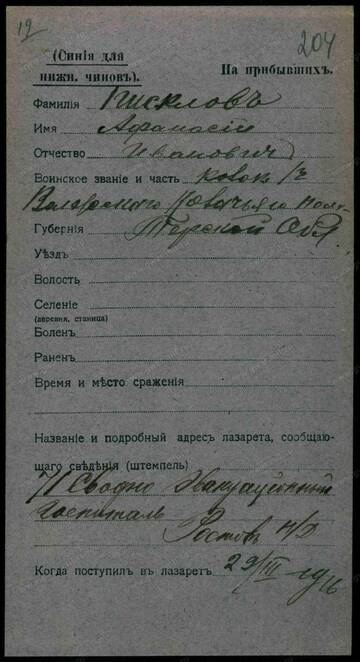 19
204
(Синія для
нижн. чиновъ).
На прибывшихъ.
Фамилія Пискловъ
Имя Афанасій
Отчество Ивановичъ
Воинское званіе и часть козок
Волгскаго Козачьяго Полк
Губернія Терской Обл.
Уѣздъ
Волость
Селеніе
(деревня, станица)
Боленъ
Раненъ
Время и мѣсто сраженія
Названіе и подробный адресъ лазарета, сообщаю-
щаго свѣдѣнія (штемпель)
71 Сводно Эвакуаціонный
Госпиталь Ростовъ н/Д
Когда поступилъ въ лазаретъ 29/III 16